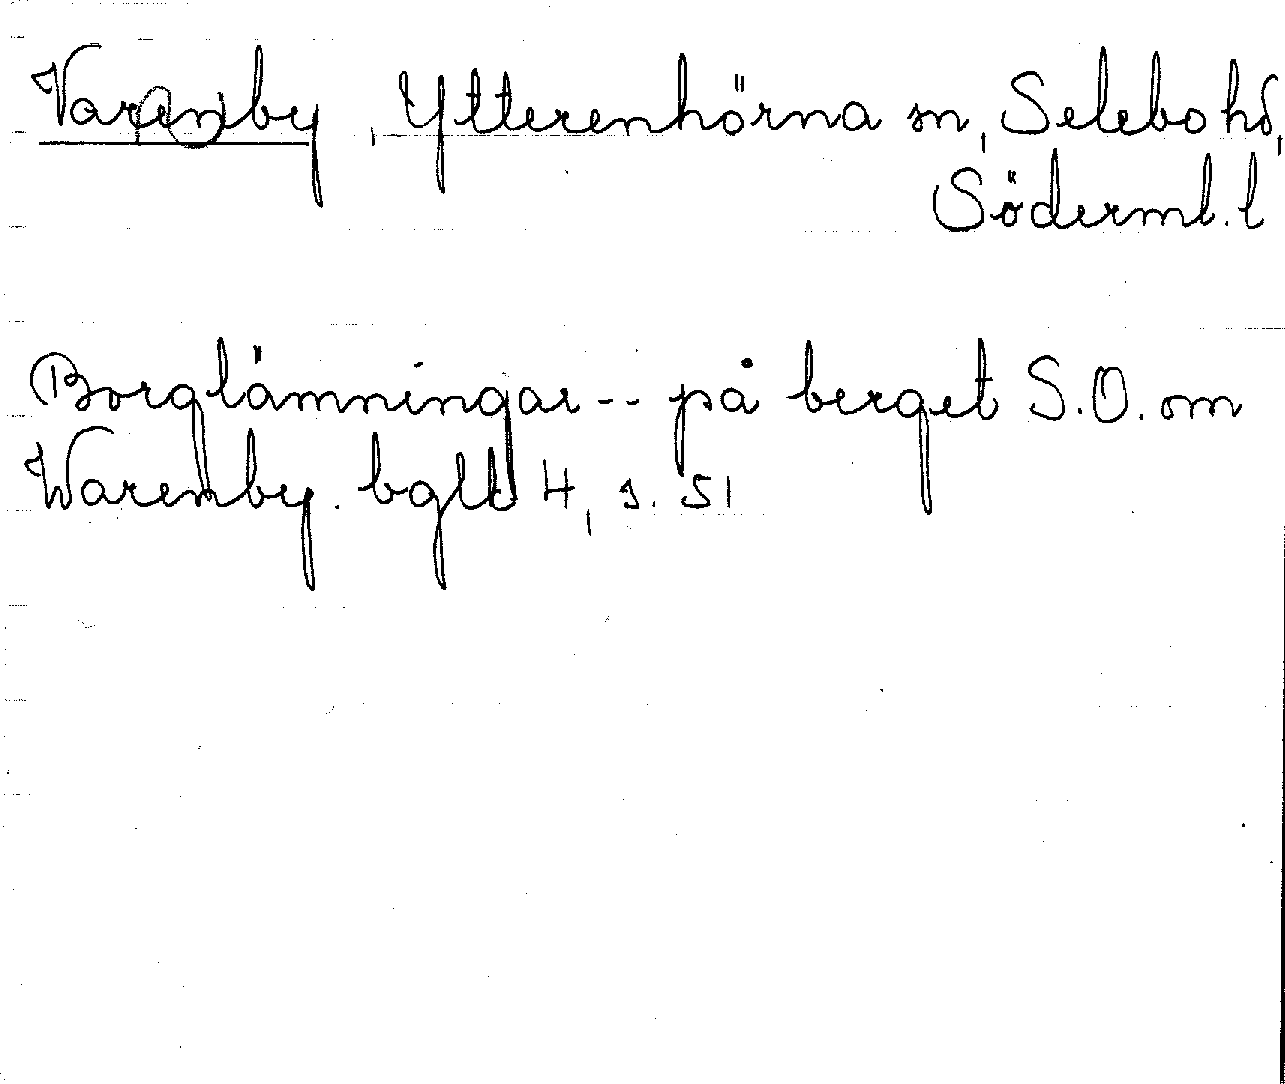 Varenby, Ytterenhörna sn, Selebo hd,
Söderml. l
Borglämningar -- på berget S.O. om
Warenby. bglt 4, s. 51